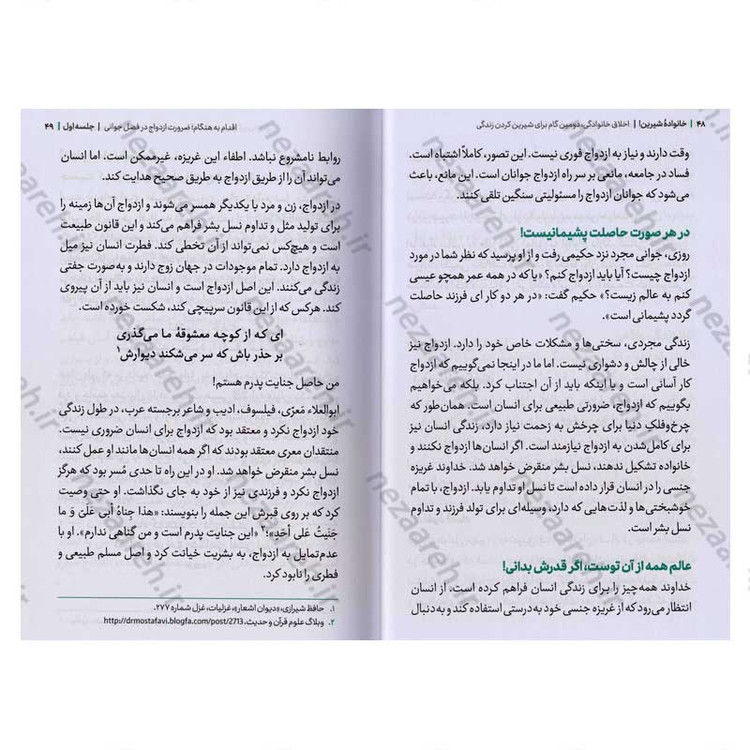 ۴۸ | خانوادهٔ شیرین! | اخلاق خانوادگی، دومین گام برای شیرین کردن زندگی
وقت دارند و نیاز به ازدواج فوری نیست. این تصور، کاملاً اشتباه است.
فساد در جامعه، مانعی بر سر راه ازدواج جوانان است. این مانع، باعث
می‌شود که جوانان ازدواج را مسئولیتی سنگین تلقی کنند.
در هر صورت حاصلت پشیمانیست!
روزی، جوانی مجرد نزد حکیمی رفت و از او پرسید که نظر شما در مورد
ازدواج چیست؟ آیا باید ازدواج کنم؟ «یا که در همه عمر همچو عیسی
کنم به عالم زیست؟» حکیم گفت: «در هر دو کار ای فرزند حاصلت
گردد پشیمانی است».
زندگی مجردی، سختی‌ها و مشکلات خاص خود را دارد. ازدواج نیز
خالی از چالش و دشواری نیست. اما ما در اینجا نمی‌گوییم که ازدواج
کار آسانی است و یا اینکه باید از آن اجتناب کرد. بلکه می‌خواهیم
بگوییم که ازدواج، ضرورتی طبیعی برای انسان است. همان‌طور که
چرخ‌وفلک دنیا برای چرخش به زحمت نیاز دارد، زندگی انسان نیز
برای کامل‌شدن به ازدواج نیازمند است. اگر انسان‌ها ازدواج نکنند و
خانواده تشکیل ندهند، نسل بشر منقرض خواهد شد. خداوند غریزه
جنسی را در انسان قرار داده است تا نسل او تداوم یابد. ازدواج، با تمام
خوشبختی‌ها و لذت‌هایی که دارد، وسیله‌ای برای تولد فرزند و تداوم
نسل بشر است.
عالم همه از آن توست، اگر قدرش بدانی!
خداوند همه‌چیز را برای زندگی انسان فراهم کرده است. از انسان
انتظار می‌رود که از غریزه جنسی خود به‌درستی استفاده کند و به‌دنبال
اقدام به هنگام؛ ضرورت ازدواج در فصل جوانی | جلسه اول | ۴۹
روابط نامشروع نباشد. اطفاء این غریزه، غیرممکن است. اما انسان
می‌تواند آن را از طریق ازدواج به طریق صحیح هدایت کند.
در ازدواج، زن و مرد با یکدیگر همسر می‌شوند و ازدواج آن‌ها زمینه را
برای تولید مثل و تداوم نسل بشر فراهم می‌کند و این قانون طبیعت
است و هیچ‌کس نمی‌تواند از آن تخطی کند. فطرت انسان نیز میل
به ازدواج دارد. تمام موجودات در جهان زوج دارند و به‌صورت جفتی
زندگی می‌کنند. این اصل ازدواج است و انسان نیز باید از آن پیروی
کند. هرکس که از این قانون سرپیچی کند، شکست خورده است.
ای که از کوچه معشوقهٔ ما می‌گذری
بر حذر باش که سر می‌شکند دیوارش۱
من حاصل جنایت پدرم هستم!
ابوالعلاء مَعرّی، فیلسوف، ادیب و شاعر برجسته عرب، در طول زندگی
خود ازدواج نکرد و معتقد بود که ازدواج برای انسان ضروری نیست.
منتقدان معری معتقد بودند که اگر همه انسان‌ها مانند او عمل کنند،
نسل بشر منقرض خواهد شد. او در این راه تا حدی مُسر بود که هرگز
ازدواج نکرد و فرزندی نیز از خود به جای نگذاشت. او حتی وصیت
کرد که بر روی قبرش این جمله را بنویسند: «هذا جِناهُ أبی عَلیَّ وَ ما
جَنَیتُ عَلی أحَدٍ»؛۲ «این جنایت پدرم است و من گناهی ندارم». او با
عدم‌تمایل به ازدواج، به بشریت خیانت کرد و اصل مسلم طبیعی و
فطری را نابود کرد.
۱. حافظ شیرازی، «دیوان اشعار»، غزلیات، غزل شماره ۲۷۷.
۲. وبلاگ علوم قرآن و حدیث، http://drmostafavi.blogfa.com/post/2713
nezaareh.ir